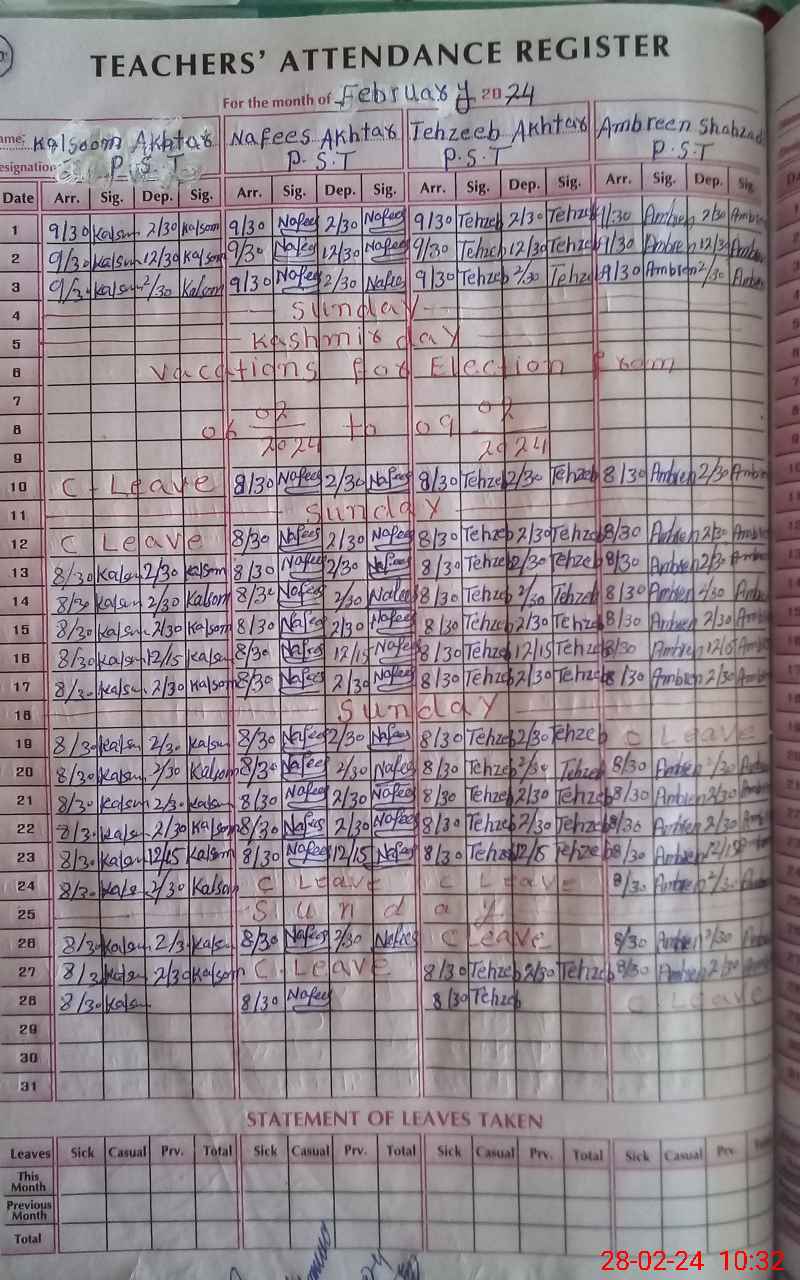 TEACHERS' ATTENDANCE REGISTER
For the month of February 2024
ame: Kalsoom Akhtar Nafees Akhtar Tehzeeb Akhtar Ambreen Shahzad
esignation P.S.T P.S.T P.S.T P.S.T
Date Arr. Sig. Dep. Sig. Arr. Sig. Dep. Sig. Arr. Sig. Dep. Sig. Arr. Sig. Dep. Sig
1 9/30 Kalsum 2/30 Kalsom 9/30 Nafees 2/30 Nafees 9/30 Tehzeb 2/30 Tehzeb 9/30 Ambren 2/30 Ambren
2 9/30 Kalsum 12/30 Kalsom 9/30 Nafees 12/30 Nafees 9/30 Tehzeb 12/30 Tehzeb 9/30 Ambren 12/30 Ambren
3 9/30 Kalsum 2/30 Kalsom 9/30 Nafees 2/30 Nafees 9/30 Tehzeb 2/30 Tehzeb 9/30 Ambren 2/30 Ambren
4 Sunday
5 Kashmir day
6 Vacations for Election from
7
8 06 02/2024 to 09 02/2024
9
10 C-Leave 8/30 Nafees 2/30 Nafees 8/30 Tehzeb 2/30 Tehzeb 8/30 Ambren 2/30 Ambren
11 Sunday
12 C Leave 8/30 Nafees 2/30 Nafees 8/30 Tehzeb 2/30 Tehzeb 8/30 Ambren 2/30 Ambren
13 8/30 Kalsum 2/30 Kalsom 8/30 Nafees 2/30 Nafees 8/30 Tehzeb 2/30 Tehzeb 8/30 Ambren 2/30 Ambren
14 8/30 Kalsum 2/30 Kalsom 8/30 Nafees 2/30 Nafees 8/30 Tehzeb 2/30 Tehzeb 8/30 Ambren 2/30 Ambren
15 8/30 Kalsum 2/30 Kalsom 8/30 Nafees 2/30 Nafees 8/30 Tehzeb 2/30 Tehzeb 8/30 Ambren 2/30 Ambren
16 8/30 Kalsum 12/15 Kalsum 8/30 Nafees 12/15 Nafees 8/30 Tehzeb 12/15 Tehzeb 8/30 Ambren 12/15 Ambren
17 8/30 Kalsum 2/30 Kalsom 8/30 Nafees 2/30 Nafees 8/30 Tehzeb 2/30 Tehzeb 8/30 Ambren 2/30 Ambren
18 Sunday
19 8/30 Kalsum 2/30 Kalsum 8/30 Nafees 2/30 Nafees 8/30 Tehzeb 2/30 Tehzeb C Leave
20 8/30 Kalsum 2/30 Kalsom 8/30 Nafees 2/30 Nafees 8/30 Tehzeb 2/30 Tehzeb 8/30 Ambren 2/30 Ambren
21 8/30 Kalsum 2/30 Kalsum 8/30 Nafees 2/30 Nafees 8/30 Tehzeb 2/30 Tehzeb 8/30 Ambren 2/30 Ambren
22 8/30 Kalsum 2/30 Kalsom 8/30 Nafees 2/30 Nafees 8/30 Tehzeb 2/30 Tehzeb 8/30 Ambren 2/30 Ambren
23 8/30 Kalsum 12/15 Kalsom 8/30 Nafees 12/15 Nafees 8/30 Tehzeb 12/15 Tehzeb 8/30 Ambren 12/15 Ambren
24 8/30 Kalsum 2/30 Kalsom C Leave C Leave 8/30 Ambren 2/30 Ambren
25 Sunday
26 8/30 Kalsum 2/30 Kalsum 8/30 Nafees 2/30 Nafees C Leave 8/30 Ambren 2/30 Ambren
27 8/30 Kalsum 2/30 Kalsom C-Leave 8/30 Tehzeb 2/30 Tehzeb 8/30 Ambren 2/30 Ambren
28 8/30 Kalsum 8/30 Nafees 8/30 Tehzeb C Leave
29
30
31
STATEMENT OF LEAVES TAKEN
Leaves Sick Casual Prv. Total Sick Casual Prv. Total Sick Casual Prv. Total Sick Casual Prv.
This Month
Previous Month
Total
28-02-24 10:32